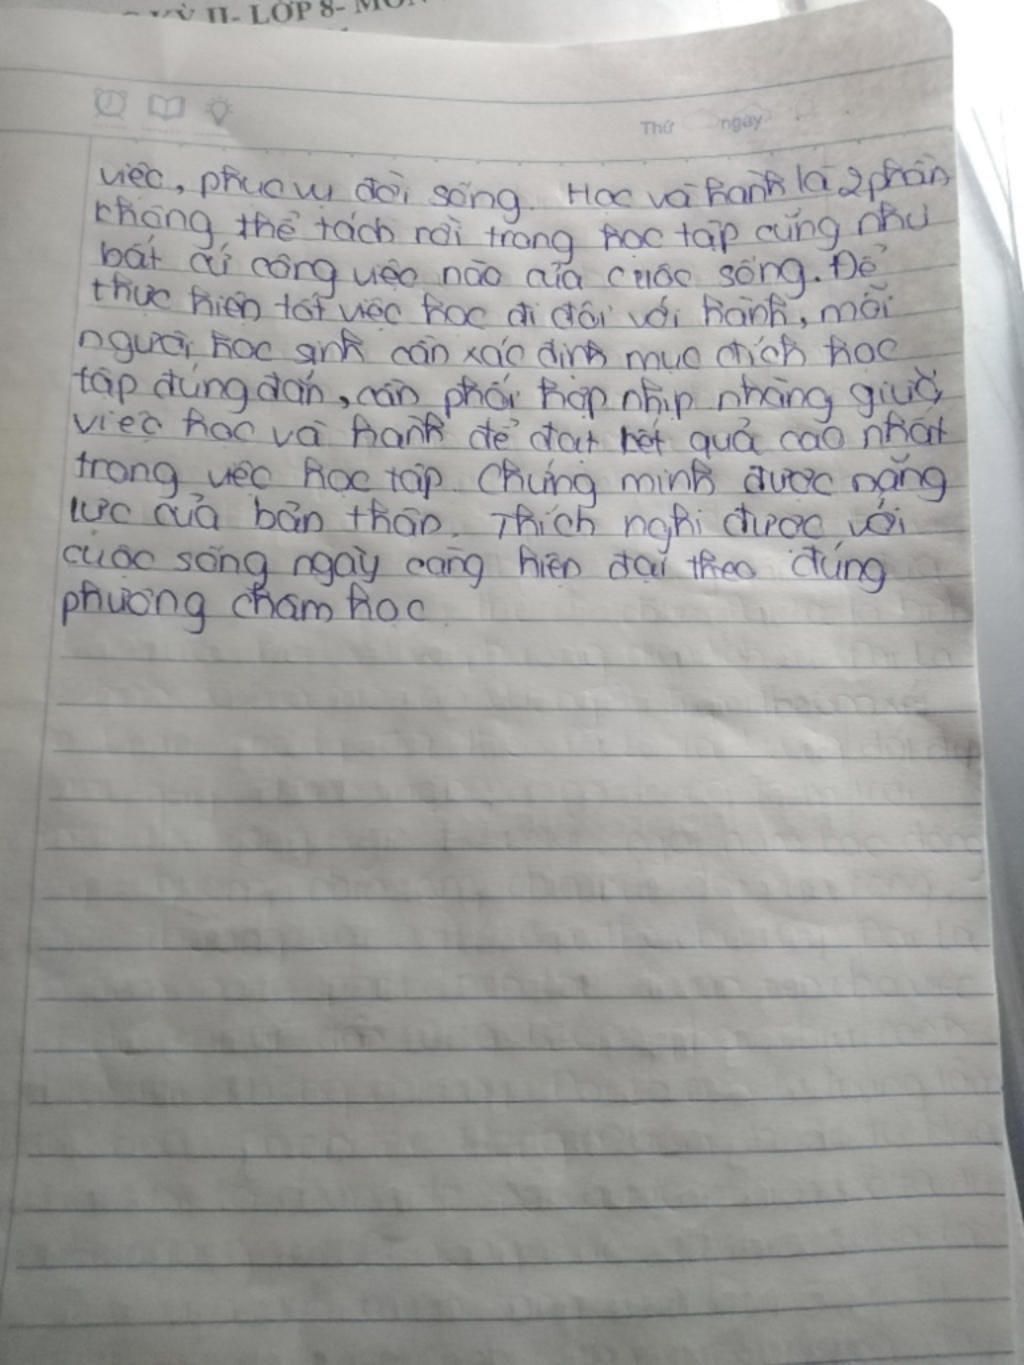 KỲ II- LỚP 8- MÔN
Thứ ngày
việc, phục vụ đời sống. Học và hành là 2 phần
không thể tách rời trong học tập cũng như
bất cứ công việc nào của cuộc sống. Để
thực hiện tốt việc học đi đôi với hành, mỗi
người học sinh cần xác định mục đích học
tập đúng đắn, cần phối hợp nhịp nhàng giữa
việc học và hành để đạt kết quả cao nhất
trong việc học tập. Chứng minh được năng
lực của bản thân. Thích nghi được với
cuộc sống ngày càng hiện đại theo đúng
phương châm học